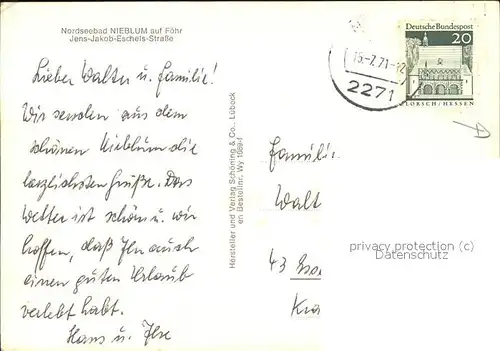 Nordseebad NIEBLUM auf Föhr
Jens-Jakob-Eschels-Straße
Lieber Walter u. Familie!
Wir senden aus dem
schönen Nieblum die
herzlichsten Grüße. Das
Wetter ist schön u. wir
hoffen, daß Ihr auch
einen guten Urlaub
verlebt habt.
Hans u. Ilse
Hersteller und Verlag Schöning & Co., Lübeck
en Bestellnr. Wy 1089-f
15.-7.71-12
2271
Deutsche Bundespost
20
LORSCH/HESSEN
Famili
Walt
43
privacy protection (c)
Datenschutz